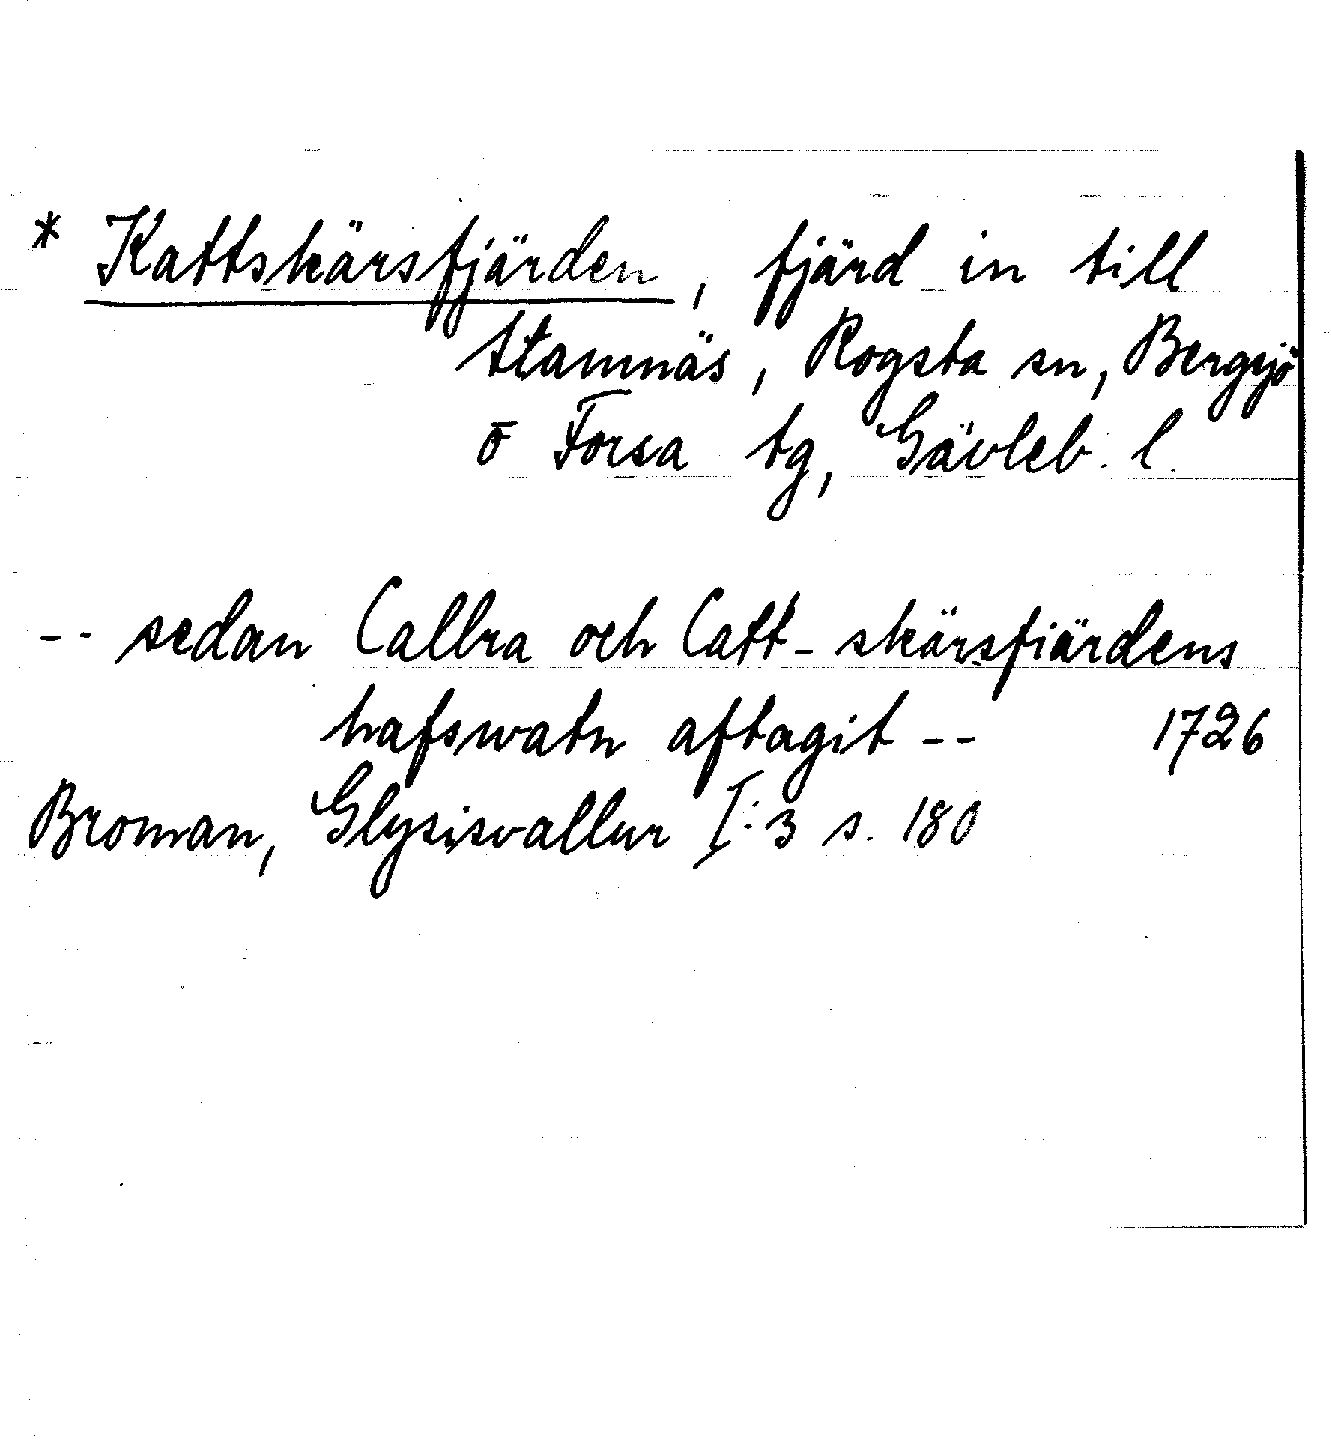 * Kattskärsfjärden, fjärd in till
Stamnäs, Rogsta sn, Bergsjö
o Forsa tg, Gävleb. l.
-- sedan Callra och Catt-skärsfiärdens
hafswatn aftagit -- 1726
Broman, Glysisvallur I:3 s. 180